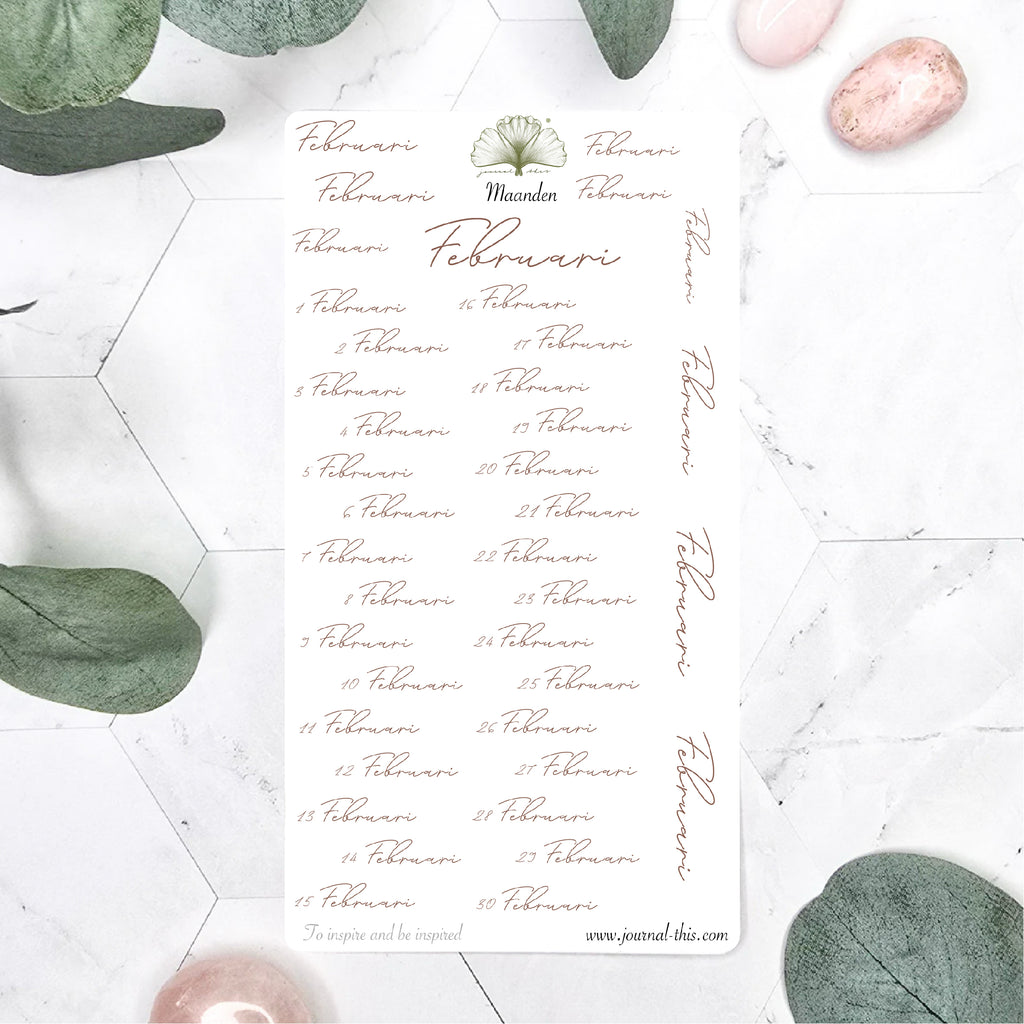 Februari
journal this
Februari
Februari
Maanden
Februari
Februari
Februari
1 Februari
2 Februari
3 Februari
4 Februari
5 Februari
6 Februari
7 Februari
8 Februari
9 Februari
10 Februari
11 Februari
12 Februari
13 Februari
14 Februari
15 Februari
16 Februari
17 Februari
18 Februari
19 Februari
20 Februari
21 Februari
22 Februari
23 Februari
24 Februari
25 Februari
26 Februari
27 Februari
28 Februari
29 Februari
30 Februari
Februari
Februari
Februari
Februari
To inspire and be inspired
www.journal-this.com